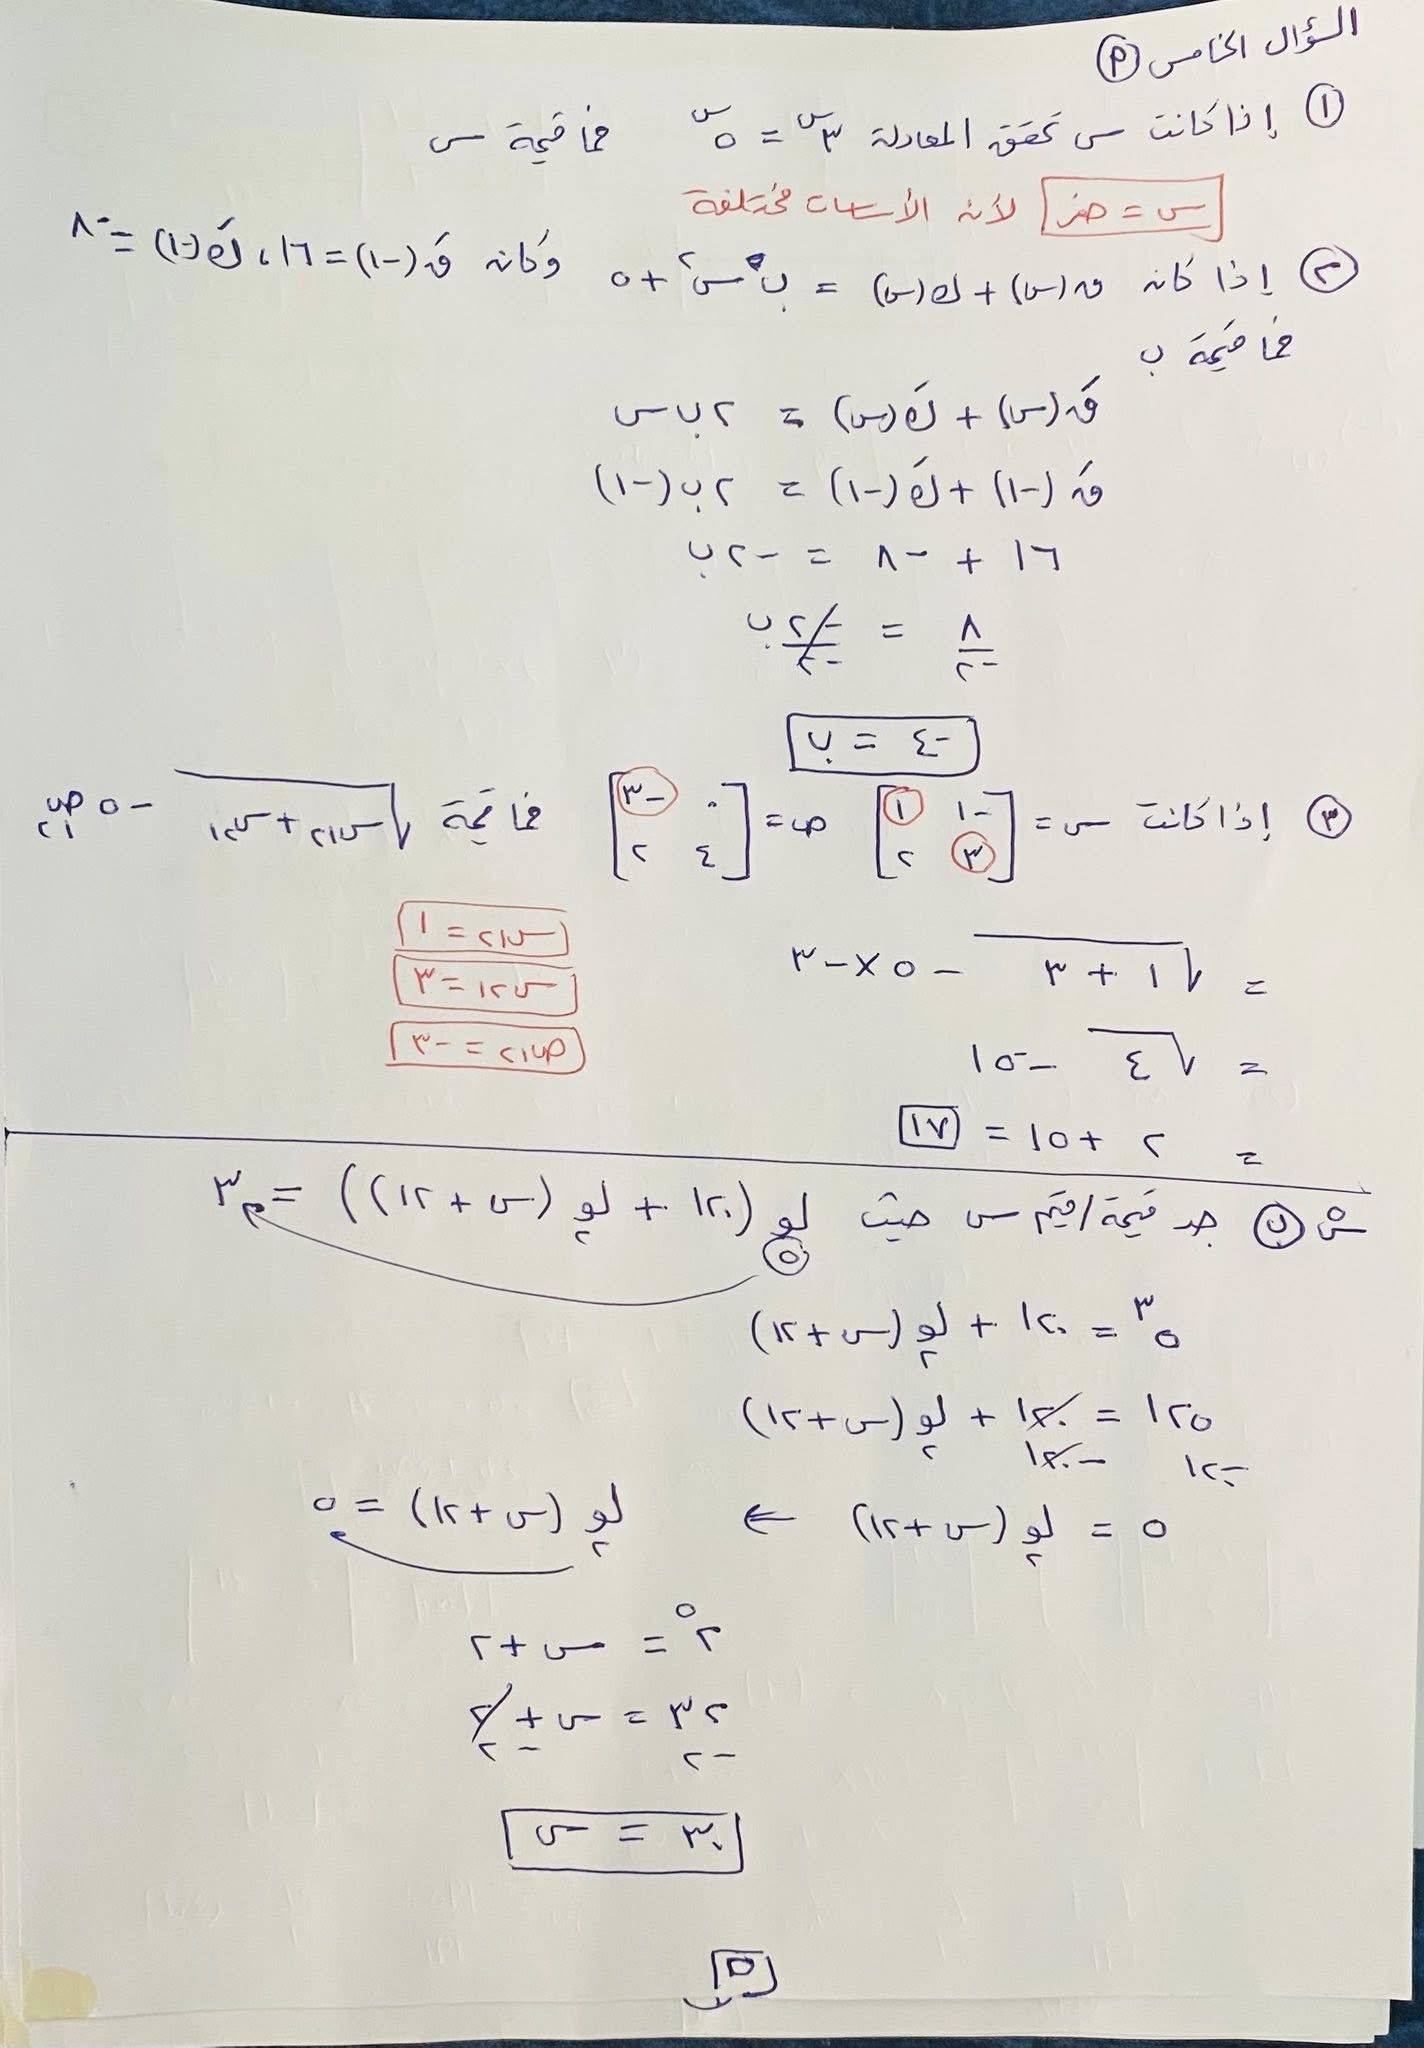 السؤال الخامس (أ)
① إذا كانت س تحقق المعادلة ٣^س = ٥^س فما قيمة س
س = صفر لأن الأساسات مختلفة
② إذا كان ق(س) + ك(س) = ب س^٢ + ٥ وكان قَ(-١) = ١٦، كَ(-١) = -٨
فما قيمة ب
قَ(س) + كَ(س) = ٢ب س
قَ(-١) + كَ(-١) = ٢ب(-١)
١٦ + -٨ = -٢ب
٨/-٢ = -٢ب/-٢
-٤ = ب
③ إذا كانت س = [-١ ١ ; ٣ ٢] ص = [٠ -٣ ; ٤ ٢] فما قيمة √(س١٢ + س٢١) - ٥ص١٢
= √(١ + ٣) - ٥ × -٣
س١٢ = ١
س٢١ = ٣
ص١٢ = -٣
= √٤ - -١٥
= ٢ + ١٥ = ١٧
ش (ب) جد قيمة/قيم س حيث لو٥(١٢٠ + لو٢(س + ٢)) = ٣
٥^٣ = ١٢٠ + لو٢(س + ٢)
١٢٥ = ١٢٠ + لو٢(س + ٢)
-١٢٠ -١٢٠
٥ = لو٢(س + ٢) ← لو٢(س + ٢) = ٥
٢^٥ = س + ٢
٣٢ = س + ٢
-٢ -٢
٣٠ = س
٥